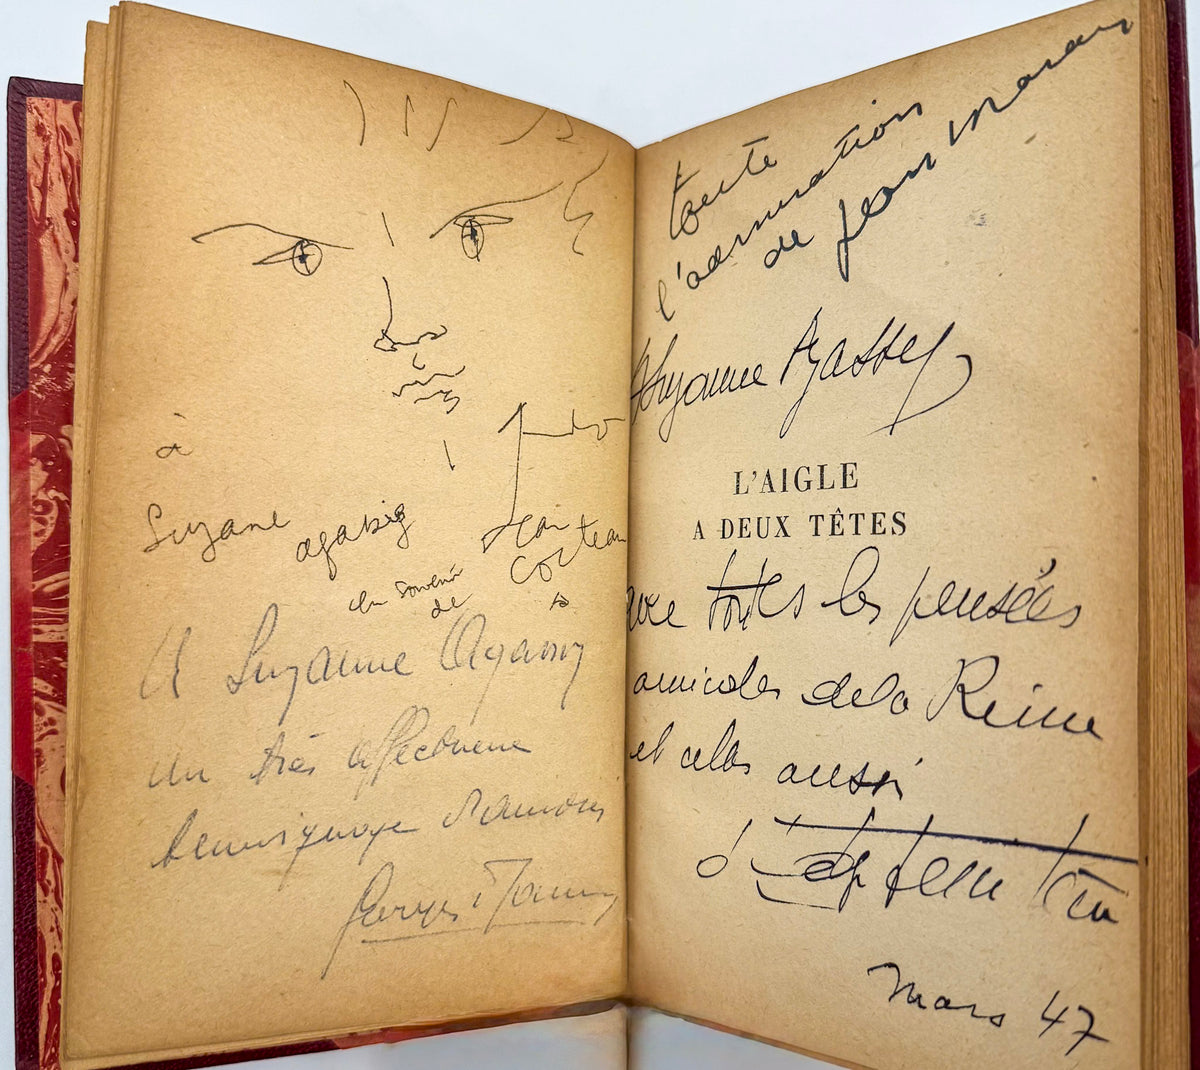 à
Suzane
agassiz
en souvenir
de
Jean
Cocteau
A Suzanne Agassiz
un très affectueux
temoignage d'amour
Georges
toute
l'admiration
de Jean Marais
Suzanne Agassiz
L'AIGLE
A DEUX TÊTES
avec toutes les pensées
amicales de la Reine
et celles aussi
d'
Mars 47